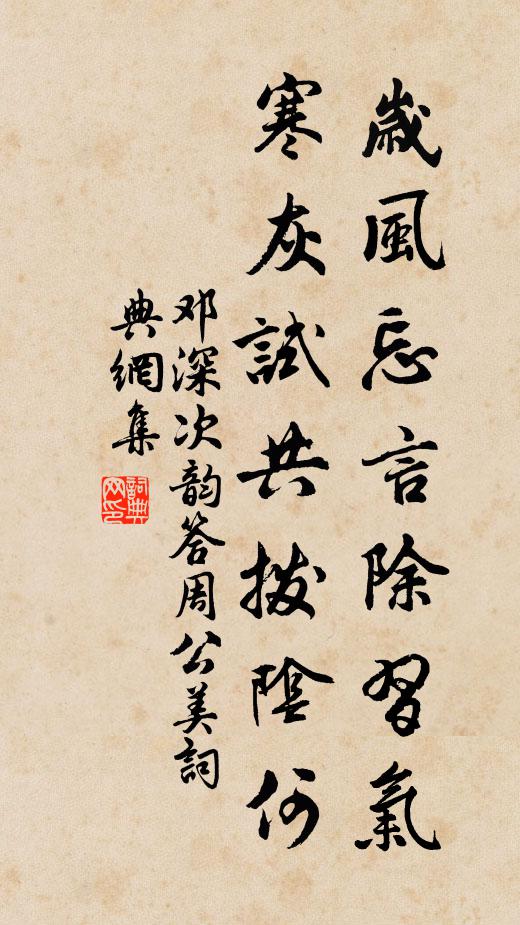 歲風忘言除習氣
寒灰試共撥陰何
邓深次韵答周公美詞
典網集
詞典
网印